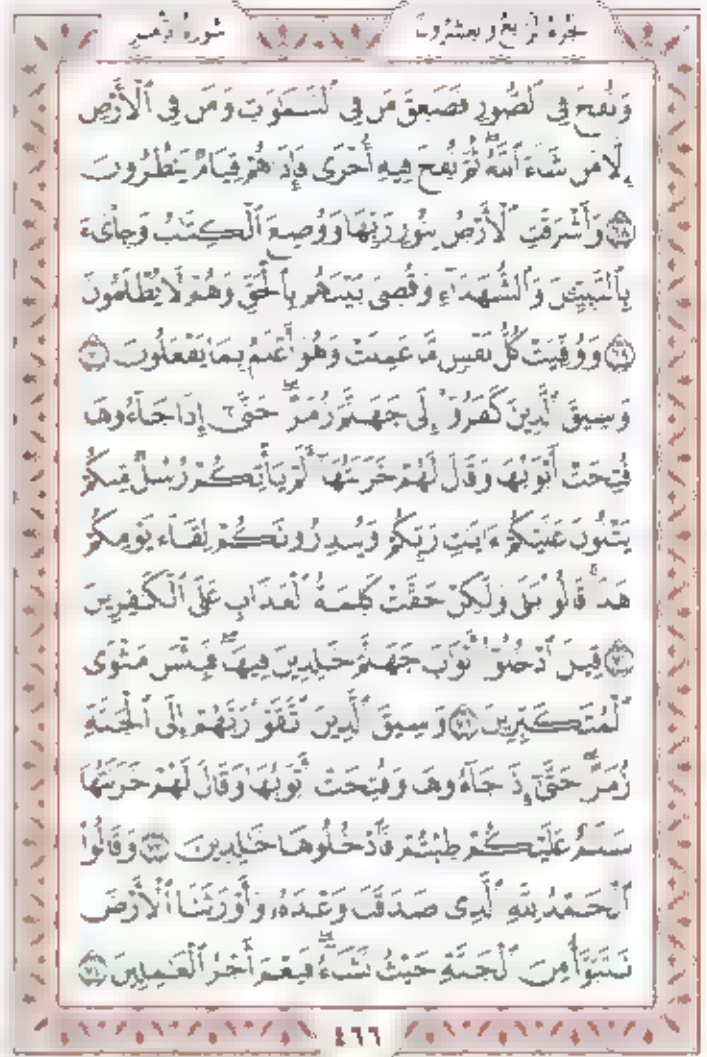 سُورَةُ الزُّمَرِ
الجُزْءُ الرَّابِعُ وَالعِشْرُونَ
وَنُفِخَ فِي ٱلصُّورِ فَصَعِقَ مَن فِي ٱلسَّمَٰوَٰتِ وَمَن فِي ٱلْأَرْضِ
إِلَّا مَن شَآءَ ٱللَّهُ ثُمَّ نُفِخَ فِيهِ أُخْرَىٰ فَإِذَا هُمْ قِيَامٌ يَنظُرُونَ
٦٨ وَأَشْرَقَتِ ٱلْأَرْضُ بِنُورِ رَبِّهَا وَوُضِعَ ٱلْكِتَٰبُ وَجِا۟ىٓءَ
بِٱلنَّبِيِّۦنَ وَٱلشُّهَدَآءِ وَقُضِىَ بَيْنَهُم بِٱلْحَقِّ وَهُمْ لَا يُظْلَمُونَ
٦٩ وَوُفِّيَتْ كُلُّ نَفْسٍ مَّا عَمِلَتْ وَهُوَ أَعْلَمُ بِمَا يَفْعَلُونَ ٧٠
وَسِيقَ ٱلَّذِينَ كَفَرُوٓا۟ إِلَىٰ جَهَنَّمَ زُمَرًا ۖ حَتَّىٰٓ إِذَا جَآءُوهَا
فُتِحَتْ أَبْوَٰبُهَا وَقَالَ لَهُمْ خَزَنَتُهَآ أَلَمْ يَأْتِكُمْ رُسُلٌ مِّنكُمْ
يَتْلُونَ عَلَيْكُمْ ءَايَٰتِ رَبِّكُمْ وَيُنذِرُونَكُمْ لِقَآءَ يَوْمِكُمْ
هَٰذَا ۚ قَالُوا۟ بَلَىٰ وَلَٰكِنْ حَقَّتْ كَلِمَةُ ٱلْعَذَابِ عَلَى ٱلْكَٰفِرِينَ
٧١ قِيلَ ٱدْخُلُوٓا۟ أَبْوَٰبَ جَهَنَّمَ خَٰلِدِينَ فِيهَا ۖ فَبِئْسَ مَثْوَى
ٱلْمُتَكَبِّرِينَ ٧٢ وَسِيقَ ٱلَّذِينَ ٱتَّقَوْا۟ رَبَّهُمْ إِلَى ٱلْجَنَّةِ
زُمَرًا ۖ حَتَّىٰٓ إِذَا جَآءُوهَا وَفُتِحَتْ أَبْوَٰبُهَا وَقَالَ لَهُمْ خَزَنَتُهَا
سَلَٰمٌ عَلَيْكُمْ طِبْتُمْ فَٱدْخُلُوهَا خَٰلِدِينَ ٧٣ وَقَالُوا۟
ٱلْحَمْدُ لِلَّهِ ٱلَّذِى صَدَقَنَا وَعْدَهُۥ وَأَوْرَثَنَا ٱلْأَرْضَ
نَتَبَوَّأُ مِنَ ٱلْجَنَّةِ حَيْثُ نَشَآءُ ۖ فَنِعْمَ أَجْرُ ٱلْعَٰمِلِينَ ٧٤
٤٦٦